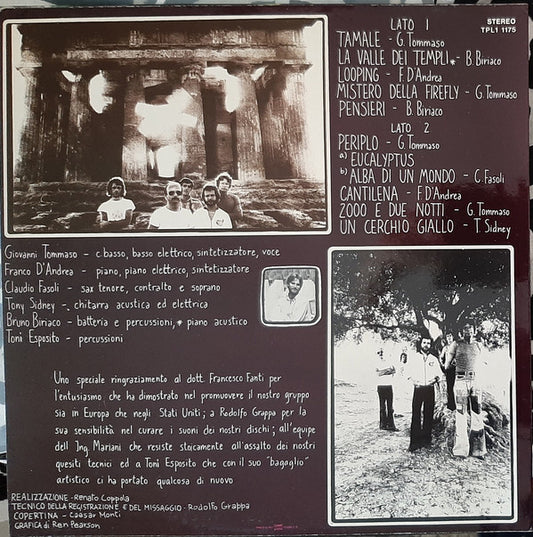 LATO 1
STEREO
TPL1 1175
TAMALE - G. Tommaso
LA VALLE DEI TEMPLI * - B. Biriaco
LOOPING - F. D'Andrea
MISTERO DELLA FIREFLY - G. Tommaso
PENSIERI - B. Biriaco
LATO 2
PERIPLO - G. Tommaso
a) EUCALYPTUS
b) ALBA DI UN MONDO - C. Fasoli
CANTILENA - F. D'Andrea
2000 E DUE NOTTI - G. Tommaso
UN CERCHIO GIALLO - T. Sidney
Giovanni Tommaso - c. basso, basso elettrico, sintetizzatore, voce
Franco D'Andrea - piano, piano elettrico, sintetizzatore
Claudio Fasoli - sax tenore, contralto e soprano
Tony Sidney - chitarra acustica ed elettrica
Bruno Biriaco - batteria e percussioni, * piano acustico
Toni Esposito - percussioni
Uno speciale ringraziamento al dott. Francesco Fanti per
l'entusiasmo che ha dimostrato nel promuovere il nostro gruppo
sia in Europa che negli Stati Uniti; a Rodolfo Grappa per la
sua sensibilità nel curare i suoni dei nostri dischi; all'equipe
dell' Ing. Mariani che resiste stoicamente all'assalto dei nostri
quesiti tecnici ed a Toni Esposito che con il suo "bagaglio"
artistico ci ha portato qualcosa di nuovo
REALIZZAZIONE - Renato Coppola
TECNICO DELLA REGISTRAZIONE E DEL MISSAGGIO - Rodolfo Grappa
COPERTINA - Caesar Monti
GRAFICA di Ren Pearson